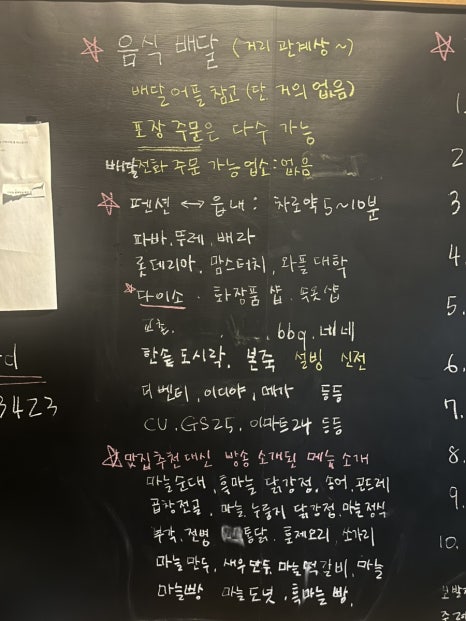 음식 배달 (거리 관계상~)
배달어플 참고 (단, 거의 없음)
포장 주문은 다수 가능
배달전화 주문 가능업소:없음
펜션 ↔ 읍내: 차로약 5~10분
파바.뚜레.배라
롯데리아, 맘스터치, 와플대학
다이소. 화장품 샵. 속옷샵
교촌. bbq.네네
한솥도시락, 본죽 설빙 신전
더벤티,이디야,메가 등등
CU.GS25.이마트24 등등
맛집추천대신 방송 소개된 메뉴 소개
마늘순대,흑마늘 닭강정,송어,곤드레
곱창전골, 마늘.누룽지 닭강정.마늘정식
부각.전병 통닭.훈제오리.쏘가리
마늘만두,새우만두,마늘떡갈비,마늘
마늘빵 마늘도넛,흑마늘빵,
d
3423
1.
2
3
5.
6.
7.
8.
9.
10.